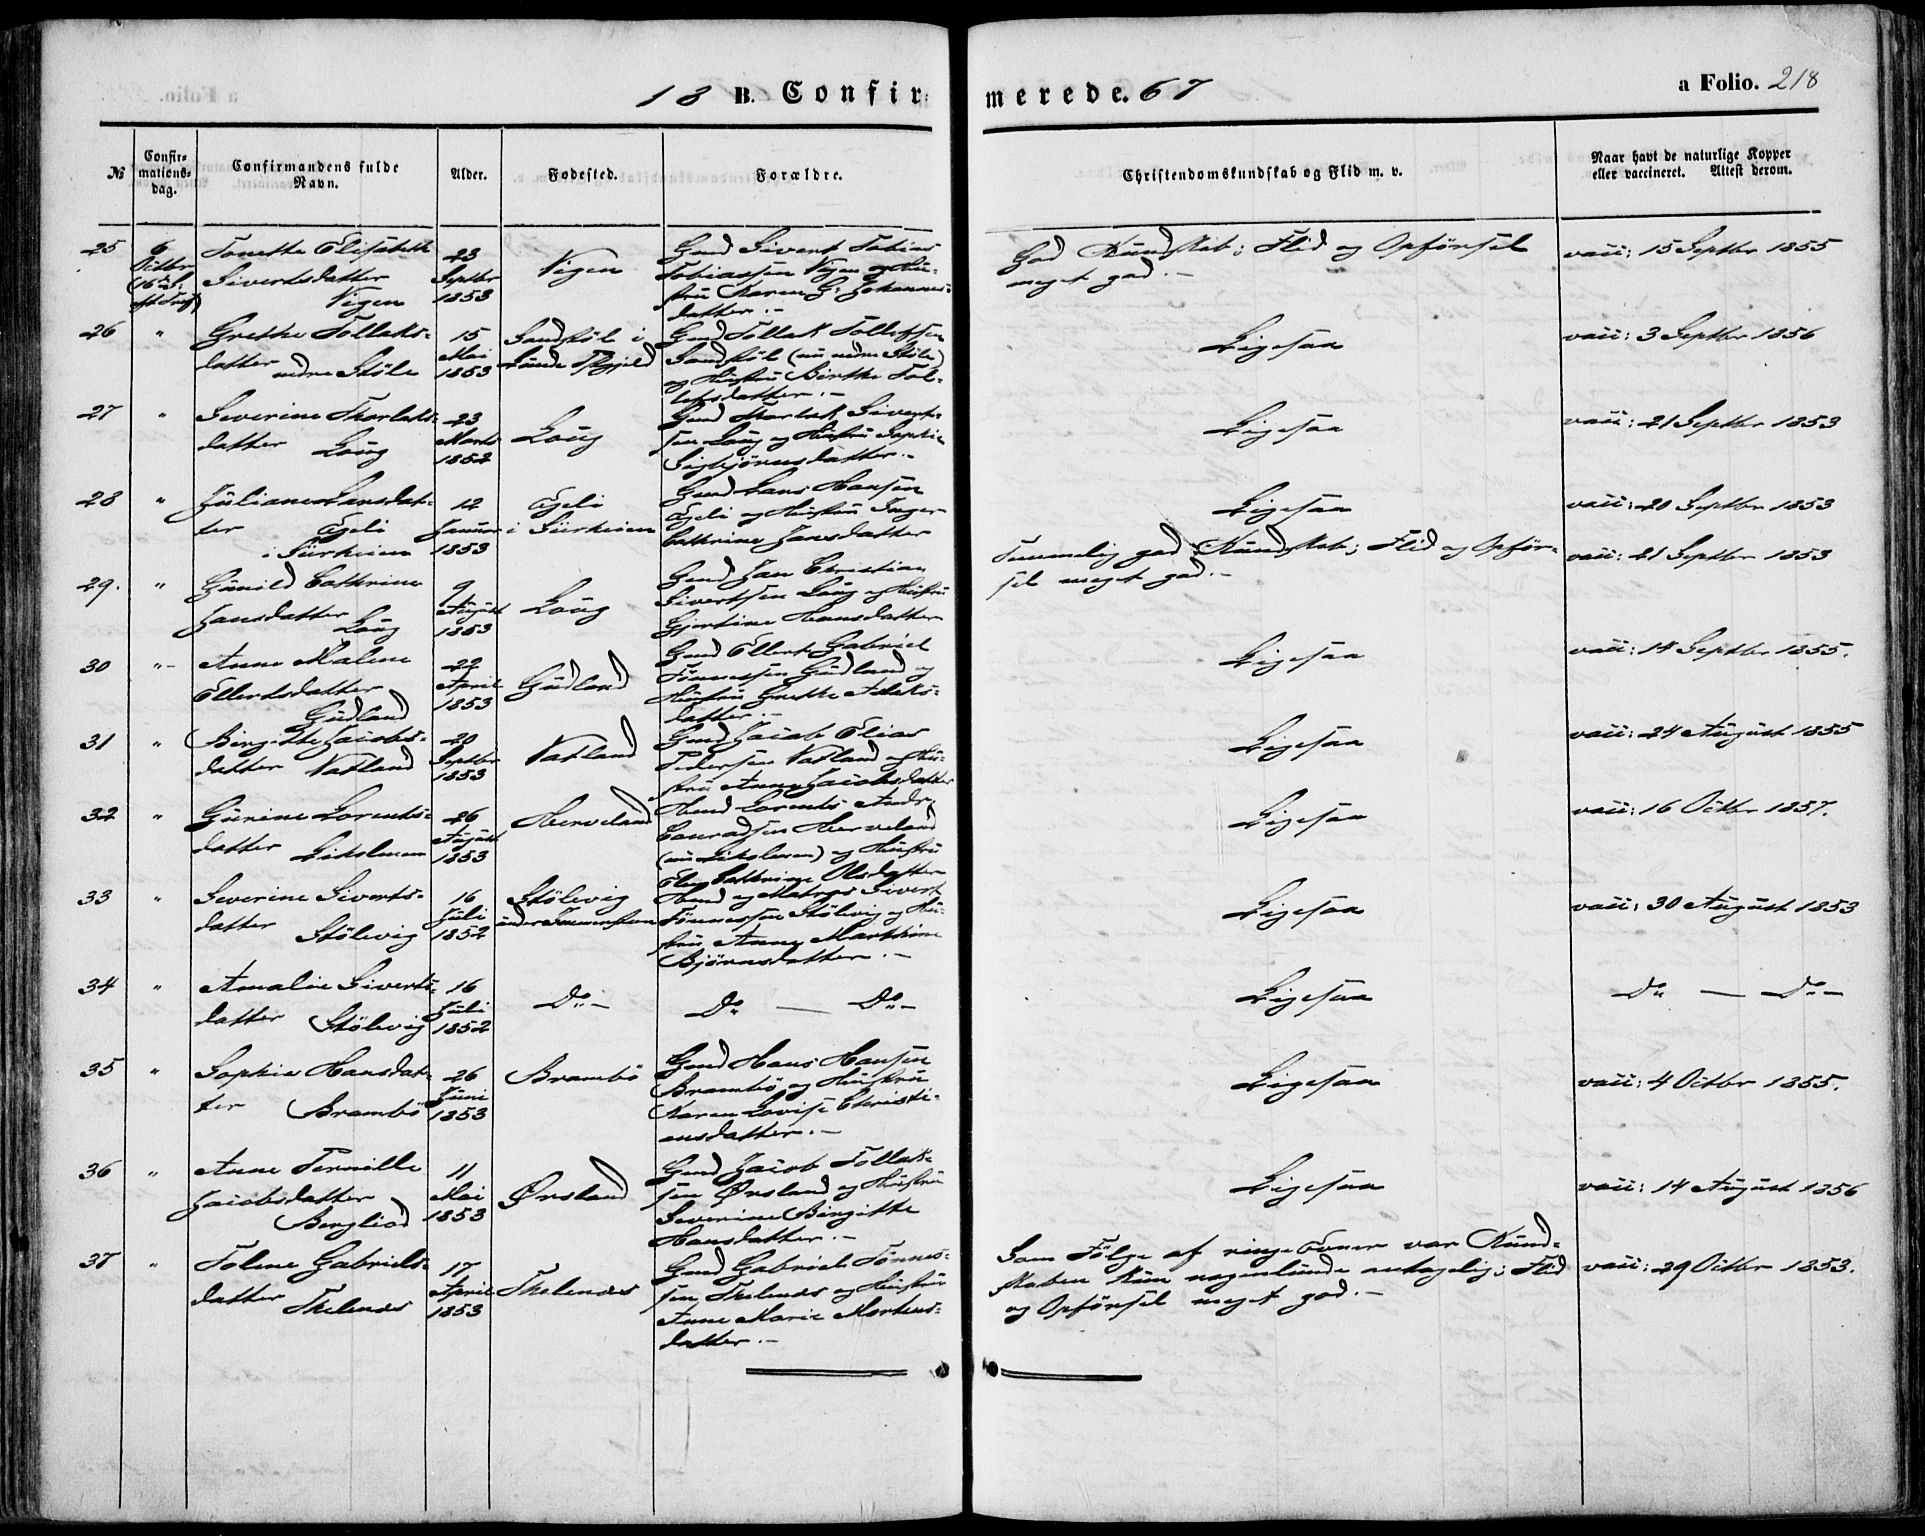 18 B. Confirmerede. 67
a Folio. 218
№
Confir-
mations-
dag.
Confirmandens fulde
Navn.
Alder.
Fodested.
Forældre.
Christendomskundskab og Flid m. v.
Naar havt de naturlige Kopper
eller vaccineret. Attest derom.
25
6
Octbr
(16 S.
eft Tref)
Tonette Elisabeth
Sivertsdatter
Vigen
23
Septbr
1853
Vigen
Gmd Sivert Tobias
Tobiassen Vigen og Hu-
stru Karen G: Johannes-
datter.-
God Kundskab; Flid og Opförsel
meget god.-
vacc: 15 Septbr 1855
26
"
Grethe Tollaks-
datter
nedre Stöle
15
Mai
1853
Sandstöl i
Lunde Prgjeld
Gmd Tollak Tollefsen
Sandstöl (nu nedre Stöle)
og Hustru Birthe Tol-
lefsdatter.-
Ligesaa
vacc: 3 Septbr 1856
27
"
Severine Thorlaks-
datter
Loug
23
Marts
1852
Loug
Gmd Thorlak Sivert-
sen Loug og Hustru Sophie
Sigbjörnsdatter.-
Ligesaa
vacc: 21 Septbr 1853
28
"
Juliane Larsdat-
ter
Egeli
i Siirheien
12
Januar
1853
Egeli
i Siirheien
Gmd Lars Hansen
Egeli og Hustru Inger
Cathrine Jansdatter
Ligesaa
vacc: 20 Septbr 1853
29.
"
Gunild Cathrine
Jansdatter
Loug
9
August
1853
Loug
Gmd Jan Christian
Sivertsen Loug og Hustru
Gjertine Hansdatter
Temmelig god Kundskab; Flid og Opför-
sel meget god.-
vacc: 21 Septbr 1853
30
"
Anne Malene
Ellertsdatter
Gudland
22
April
1853
Gudland
Gmd Ellert Gabriel
Tönnessen Gudland og
Hustru Grethe Aslaks-
datter.-
Ligesaa
vacc: 14 Septbr 1855.
31
"
Birgitte Jacobs-
datter Vatland
20
Septbr
1853
Vatland
Gmd Jacob Elias
Pedersen Vatland og Hu-
stru Anne Jacobsdatter
Ligesaa
vacc: 24 August 1855
32
"
Gurine Lorents-
datter
26
August
1853
Herveland
Hmd Lorents Andr:
Conradsen Herveland
og Hustru
Elen Cathrine Olsdatter
Ligesaa
vacc: 16 Octbr 1857.
33
"
Severine Siverts-
datter
Stölevig
16
Juli
1852
Stölevig
Hmd og Matros Sivert
Tönnessen Stölevig og Hu-
stru Anne Marthine
Björnsdatter.-
Ligesaa
vacc: 30 August 1853
34
"
Amalie Siverts-
datter Stölevig
16
Juli
1852
Do-
Do — Do-
Ligesaa
Do — Do-
35
"
Sophie Hansdat-
ter
Brambö
26
Juni
1853
Brambö
Gmd Hans Hansen
Brambö og Hustru
Karen Lovise Christi-
ansdatter.-
Ligesaa
vacc: 4 Octbr 1855.
36
"
Anne Pernille
Jacobsdatter
Bergliod
11
Mai
1853
Ørsland
Gmd Jacob Tollak-
sen Ørsland og Hustru
Severine Birgitte
Hansdatter.-
Ligesaa
vacc: 14 August 1856
37
"
Tolene Gabriels-
datter
Thelenæs
17
April
1853
Thelenæs
Gmd Gabriel Tönnes-
sen Thelenæs og Hustru
Anne Marie Mortens-
datter.-
Som Fölge af ringe Evner var Kund-
skaben kun nogenlunde antagelig; Flid
og Opförsel meget god.-
vacc: 29 Octbr 1853.